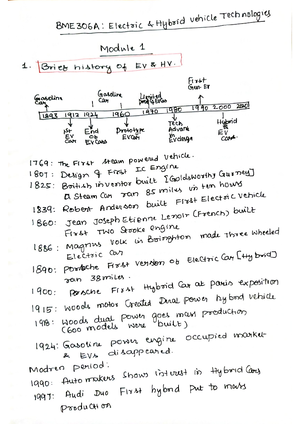 BME306A: Electric & Hybrid vehicle Technologies
Module 1
1. Brief history of EV & HV.
First
Gasoline
Car
Gasoline
Car
Limited
1893 1912 1924 1960 1970 1980 1990 2000 2010
1st
EV
Car
End
of
EV Cars
Prototype
EV Car
Tech
Advan
in
EV
Hybrid
&
EV
Cars
1769: The First steam powered vehicle.
1801: Design of First IC Engine
1825: British inventor built [Goldsworthy Gurney]
a Steam Car ran 85 miles in ten hours
1839: Robert Anderson built First Electric vehicle
1860: Jean Joseph Etienne Lenoir (French) built
First Two Stroke engine
1886: Magnus Volk in Brington made Three Wheeled
Electric Car
1890: Porsche First version of Electric Car [Hybrid]
ran 38 miles.
1900: Porsche First Hybrid Car at paris exposition
1915: Woods motor Created Dual power hybrid vehicle
1918: Woods dual power goes mass production
(600 models were built)
1924: Gasoline power engine occupied market
& EVs disappeared.
Modren period:
1990: Auto makers Show interest in Hybrid Cars
1997: Audi Duo First hybrid Put to mass
production